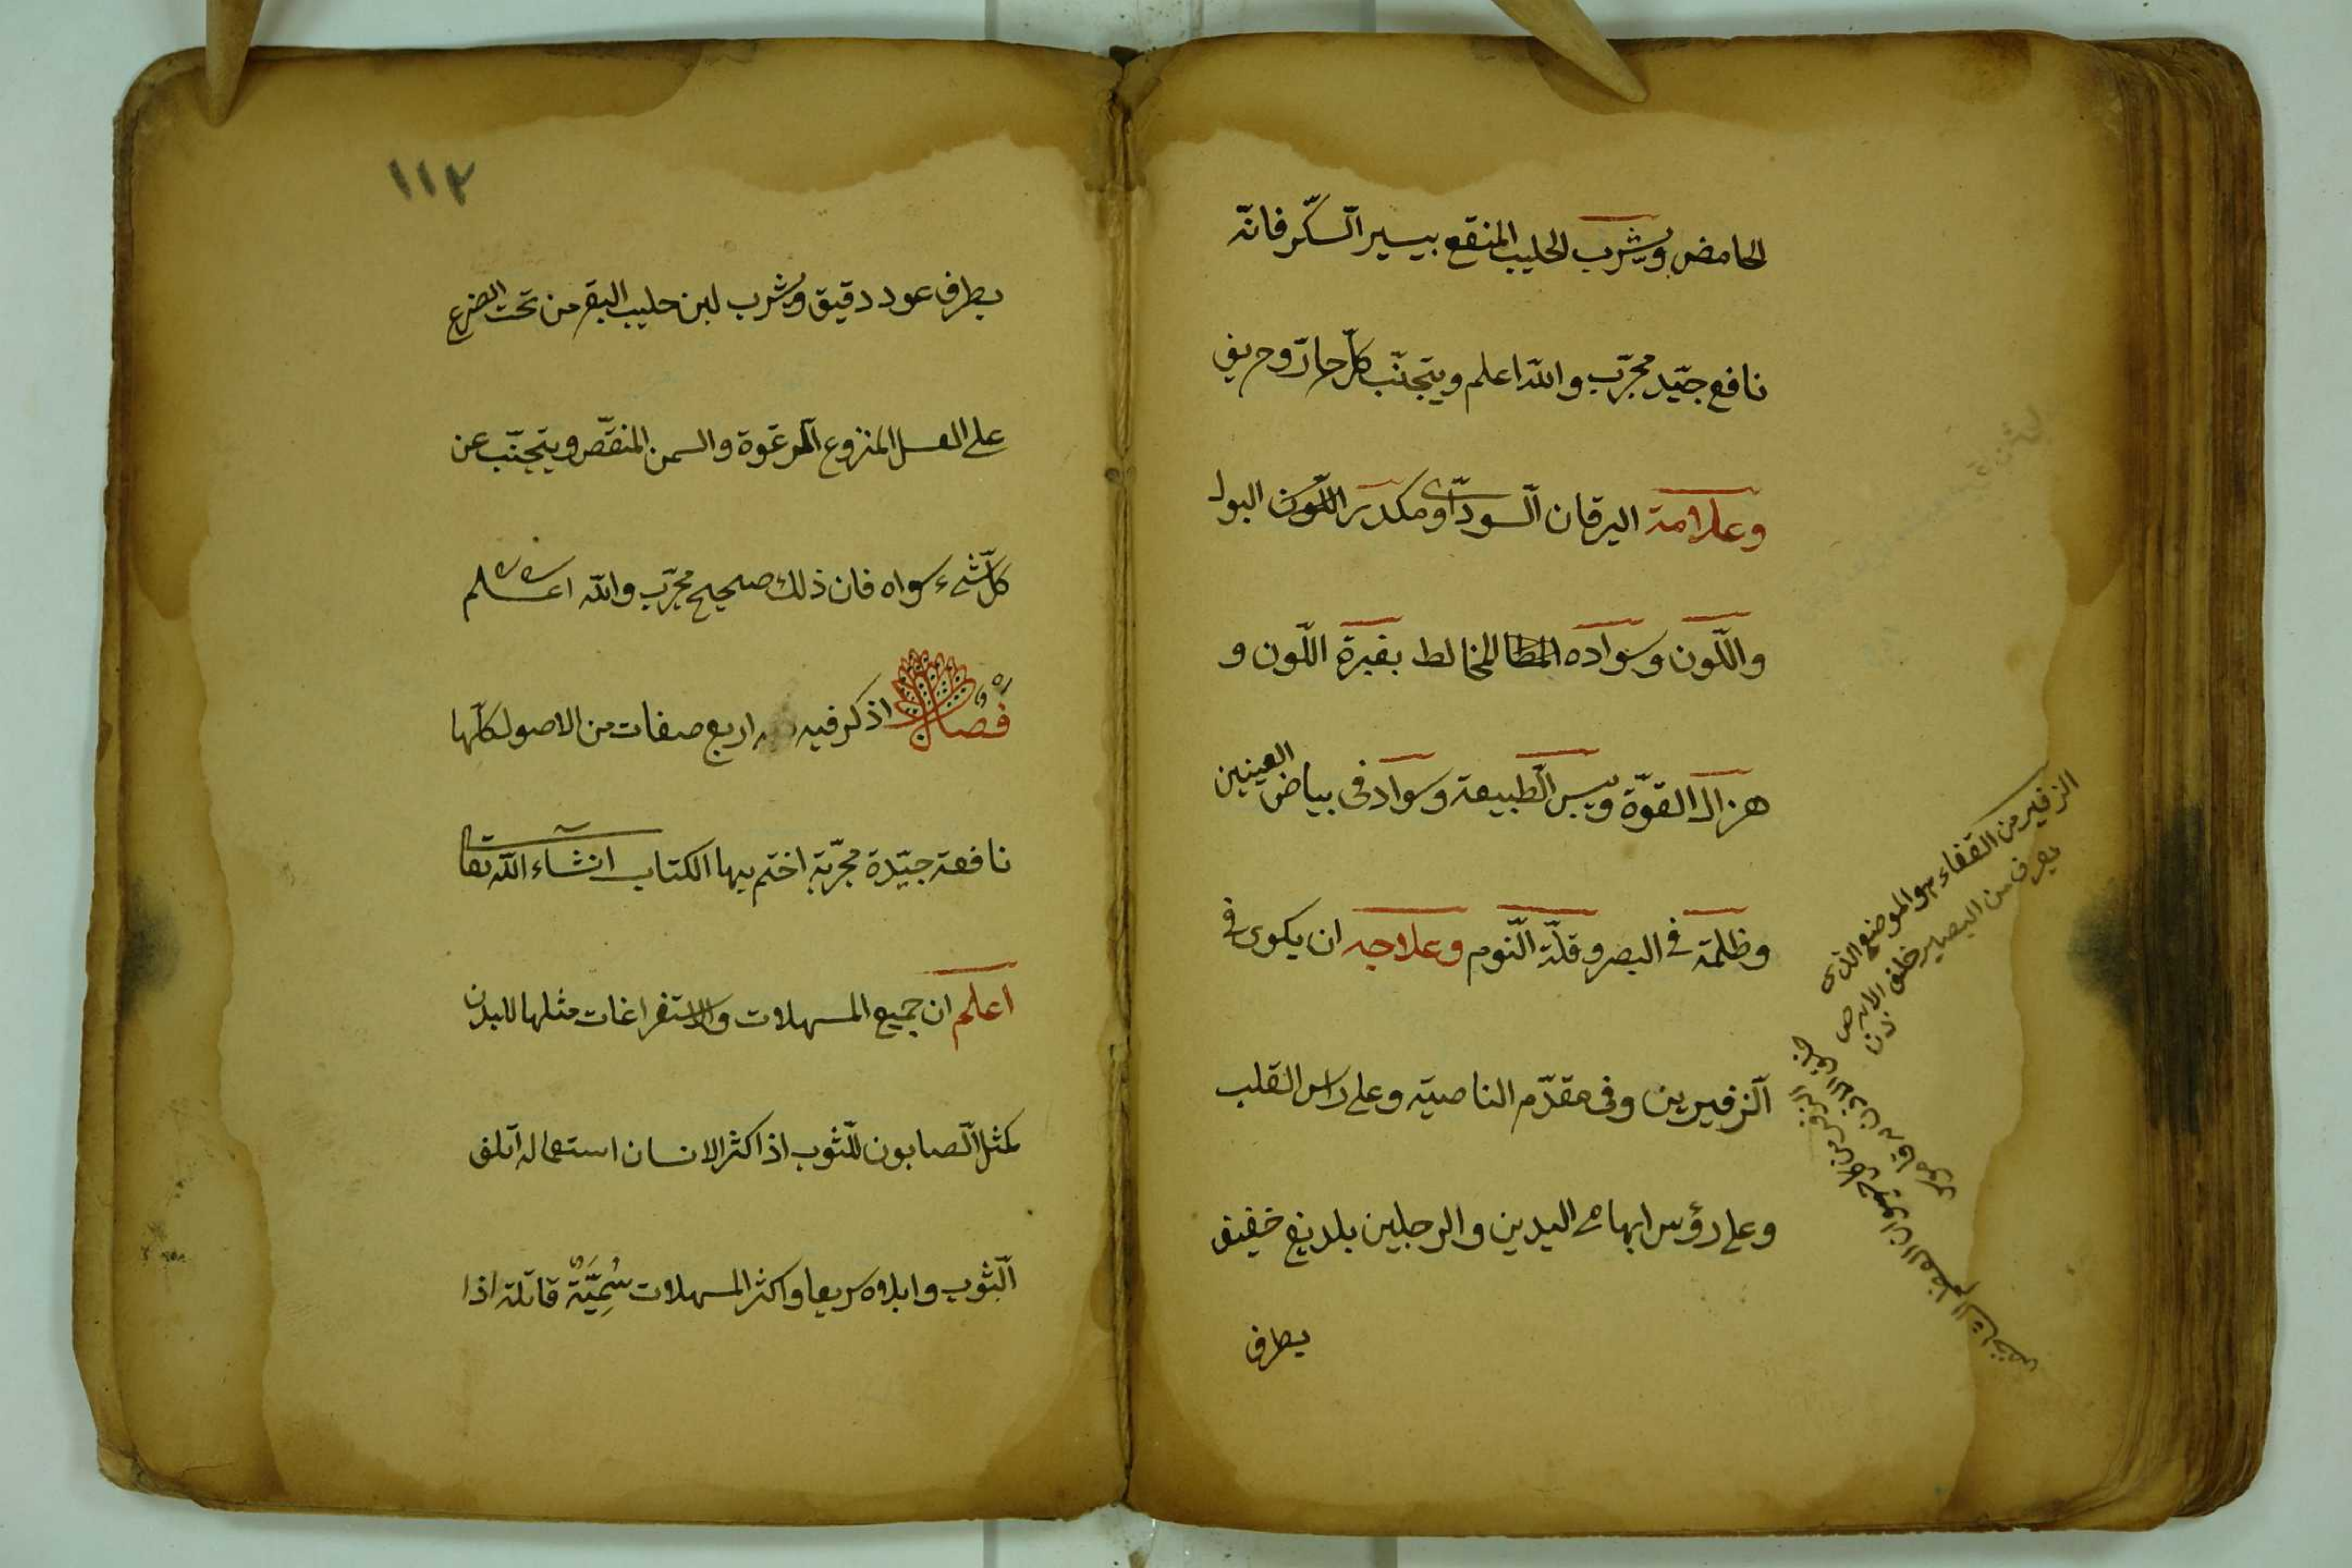 الحامض ويشرب الحليب المنقع بيسير السّكّر فانّه
نافع جيّد مجرّب والله اعلم ويتجنّب كلّ حارّ وحريف
وعلامة اليرقان السّوداوى مكدر اللّون البول
واللّون وسواده المخالط بغبرة اللّون و
هزال القوّة ويبس الطّبيعة وسواد فى بياض العينين
وظلمة فى البصر وقلّة النّوم وعلاجه ان يكوى فى
الزفيرين وفى مقدّم الناصية وعلى راس القلب
وعلى رؤس ابهامى اليدين والرجلين بلديغ خفيف
بطرف
الزفيرين القفاء هو الموضع الذى
يعرف من البصير خلف الاذن
١١٢
بطرف عود دقيق ويشرب لبن حليب البقر من تحت الضرع
على العسل المنزوع الرغوة والسمن المنقّص ويتجنّب عن
كلّ شىء سواه فان ذلك صحيح مجرّب والله اعلم
فصل اذكر فيه اربع صفات من الاصول كلّها
نافعة جيّدة مجرّبة اختم بها الكتاب انشاء الله تعا
اعلم ان جميع المسهلات والاستفراغات مثلها للبدن
كمثل الصّابون للثّوب اذا كثر الانسان استعماله اتلف
الثّوب وابلاه سريعا واكثر المسهلات سُمِيَّة قاتلة اذا